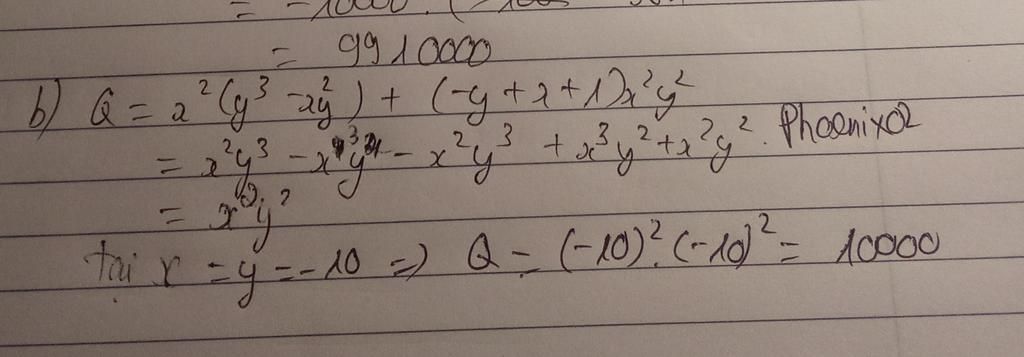 = -10000 . (
= 9910000
b) Q = x²(y³ - xy²) + (-y + x + 1)x²y²
= x²y³ - x³y² - x²y³ + x³y² + x²y². Phoenix02
= x²y²
tại x = y = -10 => Q = (-10)².(-10)² = 10000